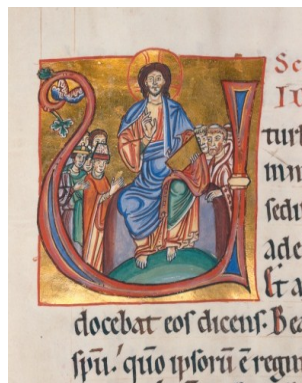 Se
turb
in m
sedi
ade
Et a
docebat eos dicens. Bea
spū ipsorū ē regnu